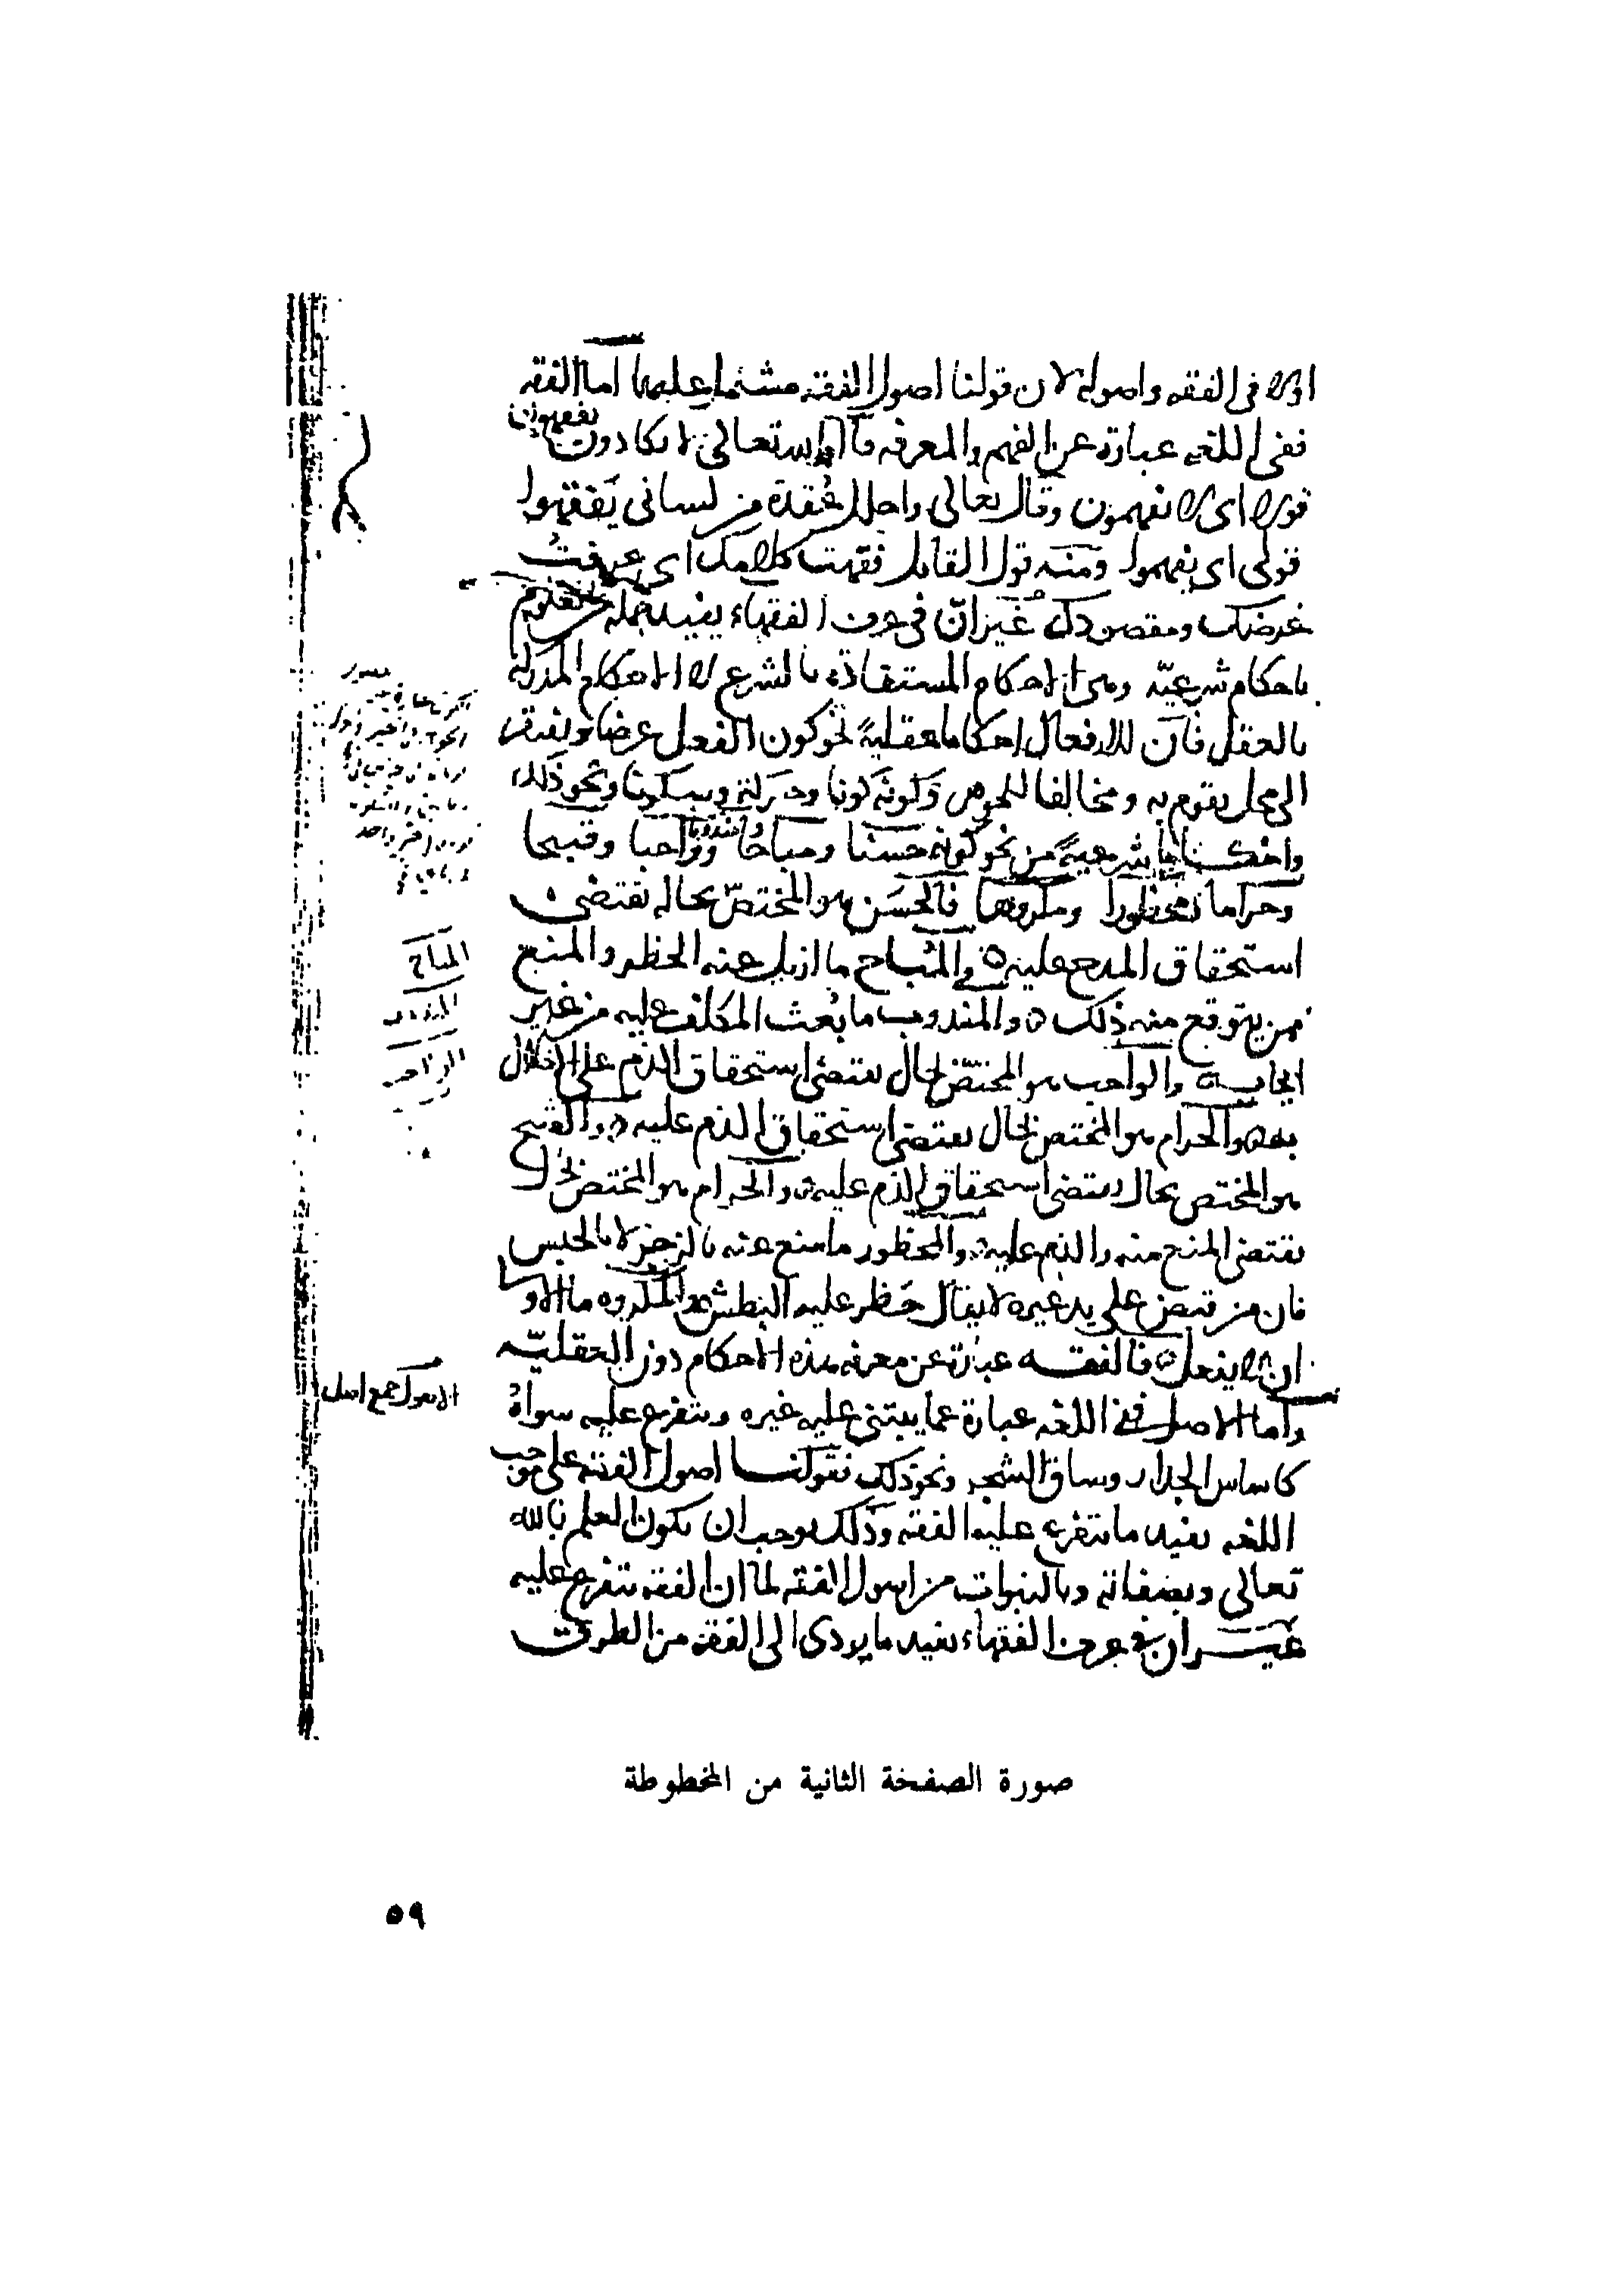 اولا في الفقه واصوله لان قولنا اصول الفقه مشتمل عليهما اما الفقه
ففي اللغه عبارة عن الفهم والمعرفه قال الله تعالى لا يكادون يفقهون
قولا اي لا يفهمون وقال تعالى واحلل عقدة من لساني يَفقهوا
قولي اي يفهموا ومنه قول القايل فقهت كلامك اي عرفتُ
غرضك ومقصدك غير انّ في عرف الفقهاء يفيد جملة من العلوم
باحكام شرعيّه وهي الاحكام المستفادة بالشرع لا الاحكام المدركة
بالعقل فان للافعال احكاما عقليةً نحو كون الفعل عرضا ويفتقر
الى محل يقوم به ومخالفا للجوهر وكونه كونا وحركة وسكونا ونحو ذلك
واحكاما شرعيةً من نحو كونه حسنا ومباحا ومندوبا وواجبا وقبيحا
وحراما ومحظورا ومكروها فالحَسَن هو المختصّ بحالة تقتضي
استحقاق المدح عليه ٥ والمُباح ما ازيل عنه الحظر والمنع
ممن يتوقع منه ذلك ٥ والمندوب ما بُعث المكلف عليه من غير
ايجاب ٥ والواجب هو المختصّ بحال يقتضي استحقاق الذم على الاخلال
به ٥ والحرام هو المختص بحال يقتضي استحقاق الذم عليه ٥ والقبيح
هو المختص بحال يقتضي استحقاق الذم عليه ٥ والحرام هو المختص بحال
يقتضي المنع منه والذم عليه ٥ والمحظور ما منع عنه بالزجر لا بالحبس
فان من قبض على يد غيره لا يقال حَظر عليه البطش ٥ والمكروه ما الاولى
ان لا يفعل ٥ فالفقه عبارة عن معرفه هذه الاحكام دون العقليّه
واما الاصل ففي اللغه عبارة عما يبتنى عليه غيره ويتفرع عليه سواهُ
كاساس الجدار وساق الشجر ونحو ذلك فقولنا اصول الفقه على موجب
اللغه يفيد ما يتفرع عليه الفقه وذلك يوجب ان يكون العلم بالله
تعالى وبصفاته وبالنبوات من اصول الفقه لما ان الفقه يتفرع عليه
غير ان في عرف الفقهاء يفيد ما يودى الى الفقه من الطرق
المباح
المندوب
الواجب
الاصول جمع اصل
صورة الصفحة الثانية من المخطوطة
٥٩